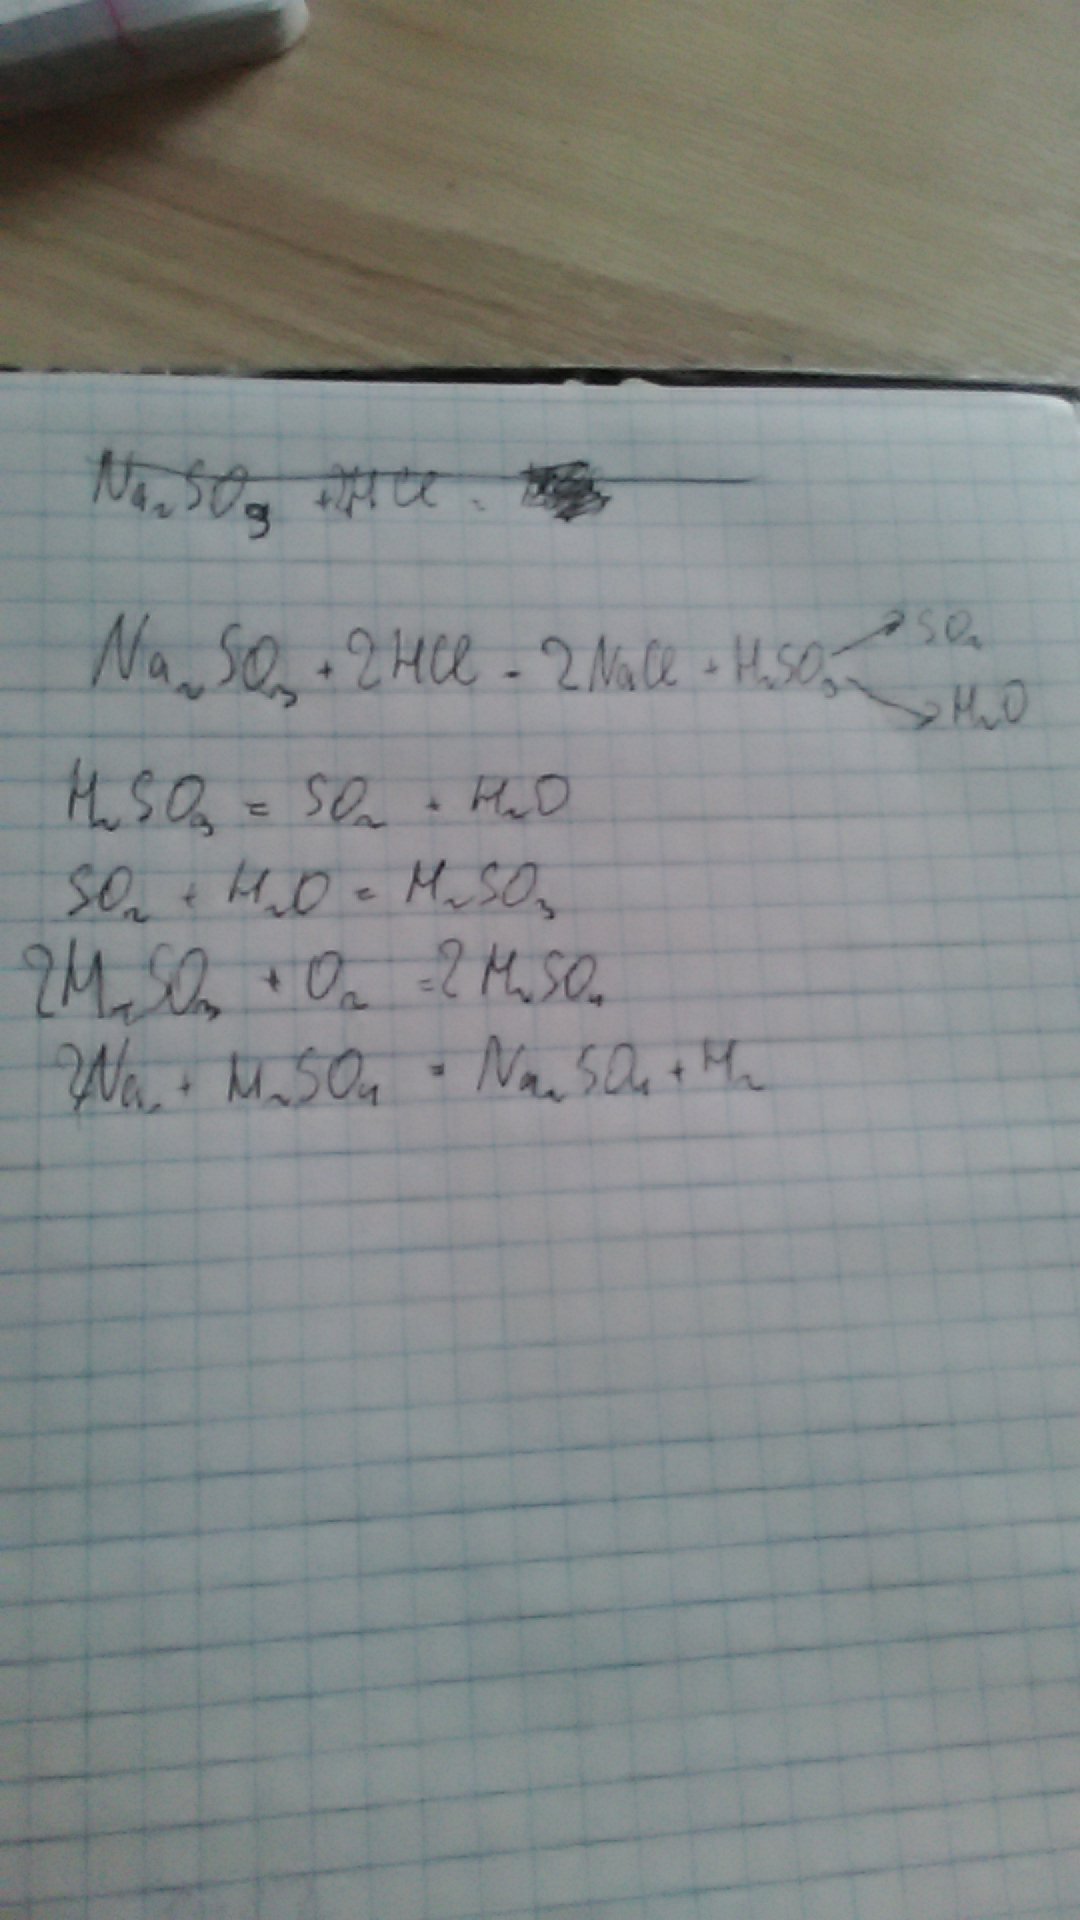 Na₂SO₃ + 2HCl =
Na₂SO₃ + 2HCl = 2NaCl + H₂SO₃ → SO₂ → H₂O
H₂SO₃ = SO₂ + H₂O
SO₂ + H₂O = H₂SO₃
2H₂SO₃ + O₂ = 2H₂SO₄
2Na + H₂SO₄ = Na₂SO₄ + H₂